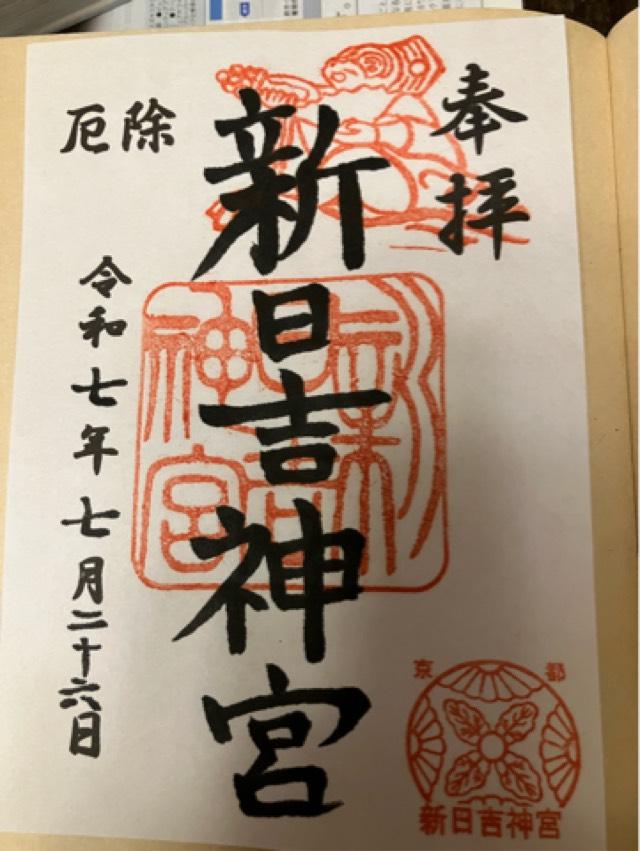 奉拝
新日吉神宮
厄除
令和七年七月二十六日
新日吉神宮
京都
新日吉神宮